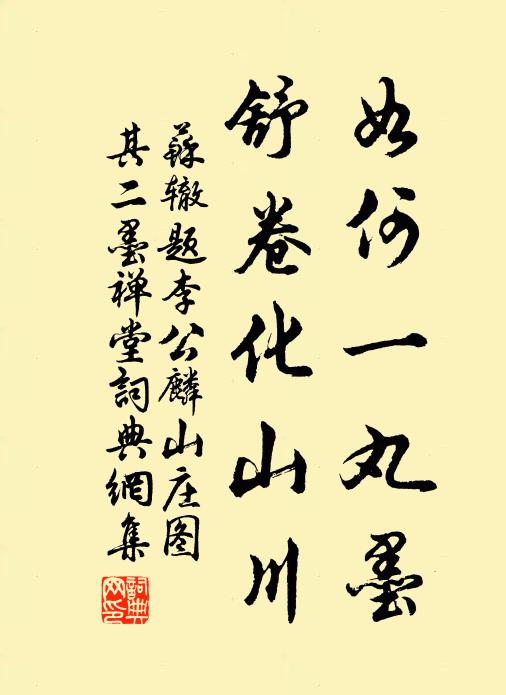 如何一丸墨
舒卷化山川
蘇辙题李公麟山庄图
其二墨禅堂詞典網集
詞典網印